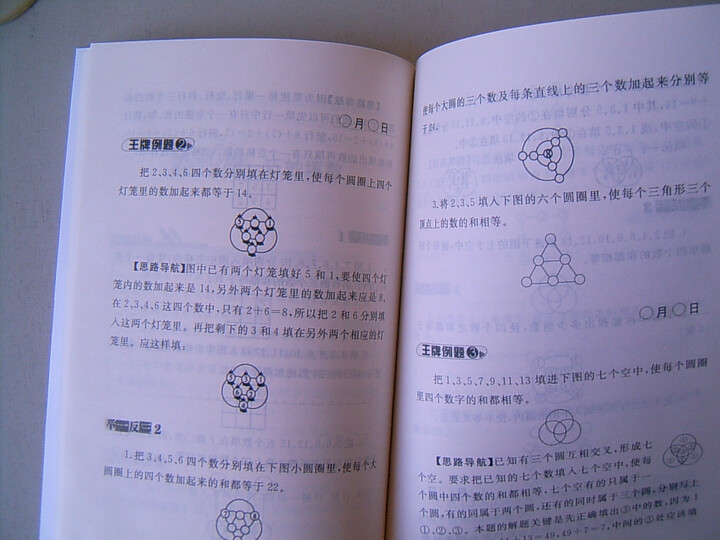 ○月○日
王牌例题②
把2,3,4,6四个数分别填在灯笼里,使每个圆圈上四个
灯笼里的数加起来都等于14。
5 1
【思路导航】图中已有两个灯笼填好5和1,要使四个灯
笼内的数加起来是14,另外两个灯笼里的数加起来应是8,
在2,3,4,6这四个数中,只有2+6=8,所以把2和6分别填
入这两个灯笼里。再把剩下的3和4填在另外两个相应的灯
笼里。应这样填:
举一反三2
1.把3,4,5,6四个数分别填在下图小圆圈里,使每个大
圆圈上的四个数加起来的和都等于22。
使每个大圆的三个数及每条直线上的三个数加起来分别等
于24。
3.将2,3,5填入下图的六个圆圈里,使每个三角形三个
顶点上的数的和相等。
○月○日
王牌例题③
把1,3,5,7,9,11,13填进下图的七个空中,使每个圆圈
里四个数字的和都相等。
【思路导航】已知有三个圆互相交叉,形成七
个空。要求把已知的七个数填入七个空中,使每
个圆中四个数的和都相等,七个空有的只属于一
个圆,有的同属于两个圆,还有的同时属于三个圆,分别写上
①、②、③。本题的解题关键是先正确填出③中的数,因为1
11+13=49,49÷7=7,中间的③处应该填